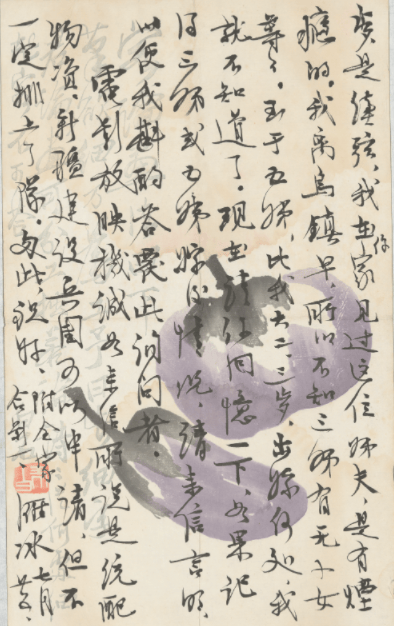 实是续弦，我在家见过这位姊夫，是有烟
瘾的。我离乌镇早，所以不知三姊有无小女
等等，至于五姊，比我大二三岁，出嫁何处，我
就不知道了。现在请你回忆一下，如果记
得三姊或五姊婚后情况，请来信言明，
以便我斟酌答覆此询问者。
電影放映機誠如来信所说是统配
物资，新疆建设兵团可以申请，但不
一定排上了队。匆此，祝好，附全家
合影一
雁冰 七月廿